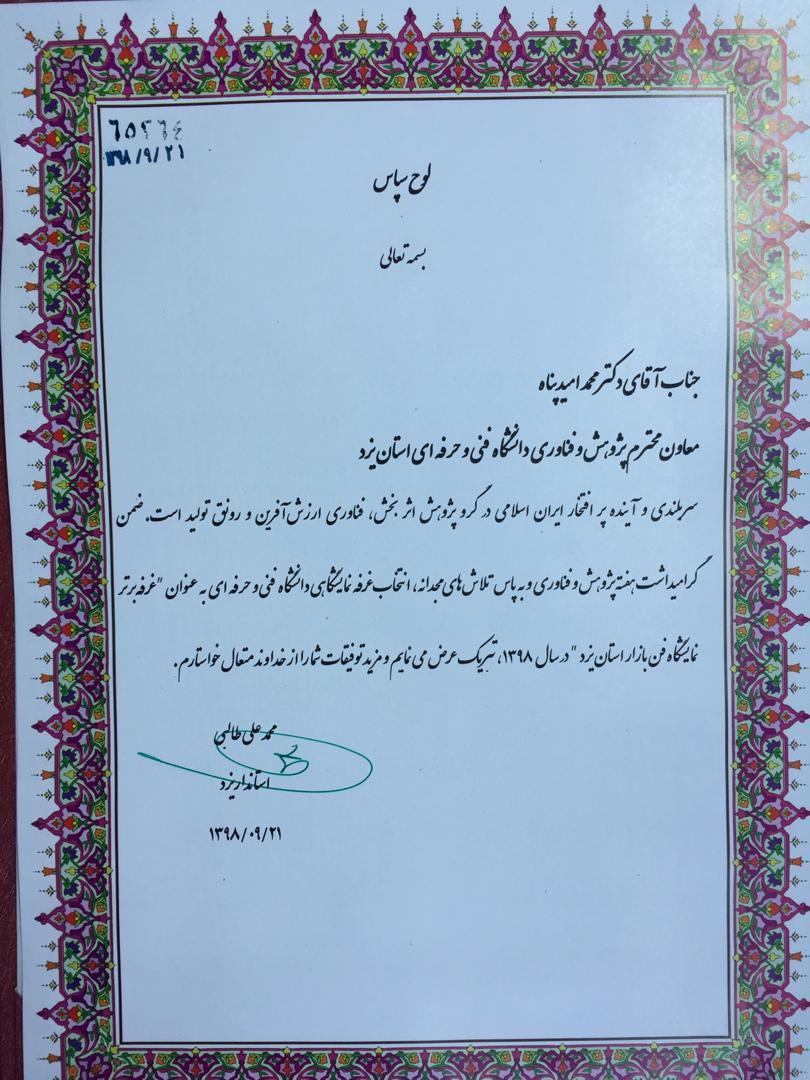 ۶۵۲۶۴
۱۳۹۸/۹/۲۱
لوح سپاس
بسمه تعالی
جناب آقای دکتر محمد امیدپناه
معاون محترم پژوهش و فناوری دانشگاه فنی و حرفه ای استان یزد
سربلندی و آینده پر افتخار ایران اسلامی در گرو پژوهش اثر بخش، فناوری ارزش آفرین و رونق تولید است. ضمن
گرامیداشت هفته پژوهش و فناوری و به پاس تلاش های مجدانه، انتخاب غرفه نمایشگاهی دانشگاه فنی و حرفه ای به عنوان "غرفه برتر
نمایشگاه فن بازار استان یزد" در سال ۱۳۹۸، تبریک عرض می نمایم و مزید توفیقات شما را از خداوند متعال خواستارم.
محمد علی طالبی
استاندار یزد
۱۳۹۸/۰۹/۲۱